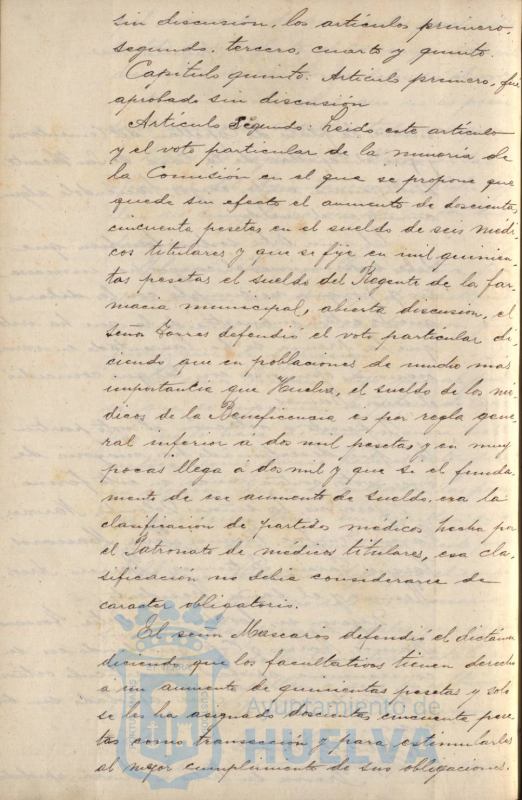 sin discusión, los artículos primero,
segundo, tercero, cuarto y quinto.
Capítulo quinto. Artículo primero, fue
aprobado sin discusión
Artículo segundo: Leido este artículo
y el voto particular de la minoría de
la Comisión en el que se propone que
quede sin efecto el aumento de doscientas
cincuenta pesetas en el sueldo de seis médi-
cos titulares y que se fije en mil quinien-
tas pesetas el sueldo del Regente de la far-
macia municipal, abierta discusión, el
señor Torres defendió el voto particular di-
ciendo que en poblaciones de mucho mas
importantia que Huelva, el sueldo de los mé-
dicos de la Beneficencia es por regla gene-
ral inferior á dos mil pesetas, y en muy
pocas llega á dos mil y que si el funda-
mento de ese aumento de sueldo, era la
clasificación de partidos médicos hecha por
el Patronato de médicos titulares, esa cla-
sificación no debia considerarse de
caracter obligatorio.
El señor Mascarós defendió el dictámen
diciendo que los facultativos tienen derecho
a un aumento de quinientas pesetas y solo
se les ha asignado doscientas cincuenta pese-
tas como transacción y para estimularles
al mejor cumplimento de sus obligaciones.
Ayuntamiento de
HUELVA